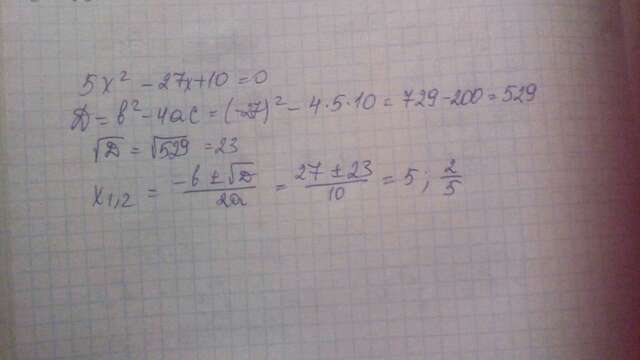 5x² - 27x+10 = 0
D = b² - 4ac = (-27)² - 4·5·10 = 729 - 200 = 529
√D = √529 = 23
x₁,₂ = (-b ± √D)/(2a) = (27 ± 23)/10 = 5 ; 2/5